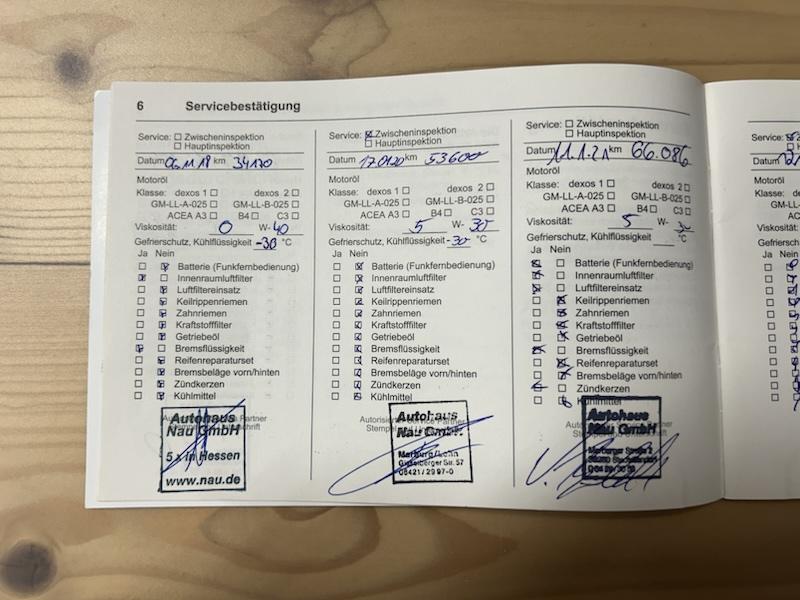 6 Servicebestätigung
Service: Zwischeninspektion
Hauptinspektion
Datum 06.11.18 km 34170
Motoröl
Klasse: dexos 1 dexos 2
GM-LL-A-025 GM-LL-B-025
ACEA A3 B4 C3
Viskosität: 0 W- 40
Gefrierschutz, Kühlflüssigkeit -30 °C
Ja Nein
Batterie (Funkfernbedienung)
Innenraumluftfilter
Luftfiltereinsatz
Keilrippenriemen
Zahnriemen
Kraftstofffilter
Getriebeöl
Bremsflüssigkeit
Reifenreparaturset
Bremsbeläge vorn/hinten
Zündkerzen
Kühlmittel
Partner
Autohaus
Nau GmbH
5 x in Hessen
www.nau.de
Service: Zwischeninspektion
Hauptinspektion
Datum 17.01.20 km 53600
Motoröl
Klasse: dexos 1 dexos 2
GM-LL-A-025 GM-LL-B-025
ACEA A3 B4 C3
Viskosität: 5 W- 30
Gefrierschutz, Kühlflüssigkeit -30 °C
Ja Nein
Batterie (Funkfernbedienung)
Innenraumluftfilter
Luftfiltereinsatz
Keilrippenriemen
Zahnriemen
Kraftstofffilter
Getriebeöl
Bremsflüssigkeit
Reifenreparaturset
Bremsbeläge vorn/hinten
Zündkerzen
Kühlmittel
Autorisierter Service Partner
Stempel
Autohaus
Nau GmbH
Marburg/Lahn
Gisselberger Str. 57
06421/2997-0
Service: Zwischeninspektion
Hauptinspektion
Datum 11.1.21 km 66.086
Motoröl
Klasse: dexos 1 dexos 2
GM-LL-A-025 GM-LL-B-025
ACEA A3 B4 C3
Viskosität: 5 W- 30
Gefrierschutz, Kühlflüssigkeit °C
Ja Nein
Batterie (Funkfernbedienung)
Innenraumluftfilter
Luftfiltereinsatz
Keilrippenriemen
Zahnriemen
Kraftstofffilter
Getriebeöl
Bremsflüssigkeit
Reifenreparaturset
Bremsbeläge vorn/hinten
Zündkerzen
Kühlmittel
Autohaus
Nau GmbH
Marburger Straße
Service:
Datum
Motoröl
Klasse:
Viskosität:
Gefriersch
Ja Nein